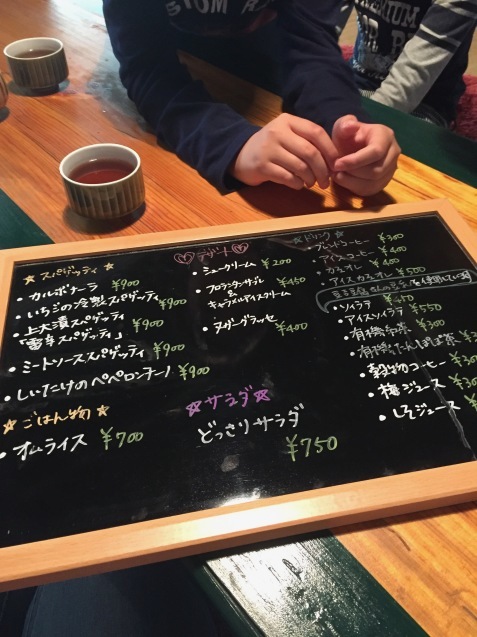 ☆ スパゲッティ ☆
・カルボナーラ ¥900
・いちごの冷製スパゲッティ ¥900
・上大漬スパゲッティ
「雷辛スパゲッティ」 ¥900
・ミートソーススパゲッティ ¥900
・しいたけのペペロンチーノ ¥900
☆ごはん物☆
・オムライス ¥700
デザート
・シュークリーム ¥200
・フロランタンサブレ
&
キャラメルアイスクリーム ¥450
・ヌガーグラッセ ¥400
☆サラダ☆
どっさりサラダ
¥750
☆ドリンク☆
ブレンドコーヒー ¥300
アイスコーヒー ¥400
カフェオレ ¥400
・アイスカフェオレ ¥500
を使用しています
・ソイラテ ¥450
・アイスソイラテ ¥550
・有機紅茶 ¥300
・有機たんぽぽ茶
・穀物コーヒー
・梅ジュース
・しそジュース